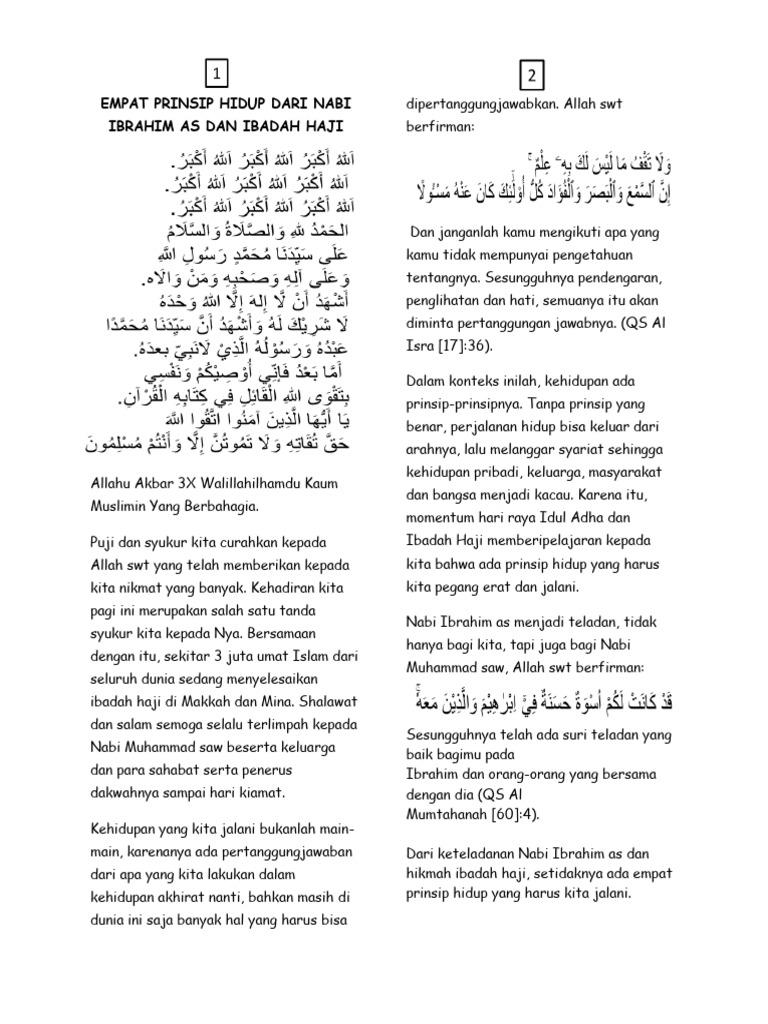 1
EMPAT PRINSIP HIDUP DARI NABI
IBRAHIM AS DAN IBADAH HAJI
اَللهُ أَكْبَرُ اَللهُ أَكْبَرُ اَللهُ أَكْبَرُ.
اَللهُ أَكْبَرُ اَللهُ أَكْبَرُ اَللهُ أَكْبَرُ.
اَللهُ أَكْبَرُ اَللهُ أَكْبَرُ اَللهُ أَكْبَرُ.
الحَمْدُ للهِ وَالصَّلَاةُ وَالسَّلَامُ
عَلَى سَيِّدَنَا مُحَمَّدٍ رَسُولِ اللَّهِ
وَعَلَى آلِهِ وَصَحْبِهِ وَمَنْ وَالَاه.
أَشْهَدُ أَنْ لَّا إِلهَ إِلَّا اللهُ وَحْدَهُ
لَا شَرِيْكَ لَهُ وَأَشْهَدُ أَنَّ سَيِّدَنَا مُحَمَّدًا
عَبْدُهُ وَرَسُوْلُهُ الَّذِيْ لَانَبِيّ بعدَهُ.
أَمَّا بَعْدُ فَإِنِّي أُوْصِيْكُمْ وَنَفْسِي
بِتَقْوَى اللهِ الْقَائِلِ فِي كِتَابِهِ الْقُرْآنِ.
يَا أَيُّهَا الَّذِينَ آمَنُوا اتَّقُوا اللَّهَ
حَقَّ تُقَاتِهِ وَلَا تَمُوتُنَّ إِلَّا وَأَنْتُمْ مُسْلِمُونَ
Allahu Akbar 3X Walillahilhamdu Kaum
Muslimin Yang Berbahagia.
Puji dan syukur kita curahkan kepada
Allah swt yang telah memberikan kepada
kita nikmat yang banyak. Kehadiran kita
pagi ini merupakan salah satu tanda
syukur kita kepada Nya. Bersamaan
dengan itu, sekitar 3 juta umat Islam dari
seluruh dunia sedang menyelesaikan
ibadah haji di Makkah dan Mina. Shalawat
dan salam semoga selalu terlimpah kepada
Nabi Muhammad saw beserta keluarga
dan para sahabat serta penerus
dakwahnya sampai hari kiamat.
Kehidupan yang kita jalani bukanlah main-
main, karenanya ada pertanggungjawaban
dari apa yang kita lakukan dalam
kehidupan akhirat nanti, bahkan masih di
dunia ini saja banyak hal yang harus bisa
2
dipertanggungjawabkan. Allah swt
berfirman:
وَلَا تَقْفُ مَا لَيْسَ لَكَ بِهِۦ عِلْمٌ ۚ
إِنَّ ٱلسَّمْعَ وَٱلْبَصَرَ وَٱلْفُؤَادَ كُلُّ أُو۟لَٰٓئِكَ كَانَ عَنْهُ مَسْـُٔولًا
Dan janganlah kamu mengikuti apa yang
kamu tidak mempunyai pengetahuan
tentangnya. Sesungguhnya pendengaran,
penglihatan dan hati, semuanya itu akan
diminta pertanggungan jawabnya. (QS Al
Isra [17]:36).
Dalam konteks inilah, kehidupan ada
prinsip-prinsipnya. Tanpa prinsip yang
benar, perjalanan hidup bisa keluar dari
arahnya, lalu melanggar syariat sehingga
kehidupan pribadi, keluarga, masyarakat
dan bangsa menjadi kacau. Karena itu,
momentum hari raya Idul Adha dan
Ibadah Haji memberipelajaran kepada
kita bahwa ada prinsip hidup yang harus
kita pegang erat dan jalani.
Nabi Ibrahim as menjadi teladan, tidak
hanya bagi kita, tapi juga bagi Nabi
Muhammad saw, Allah swt berfirman:
قَدْ كَانَتْ لَكُمْ اُسْوَةٌ حَسَنَةٌ فِيْٓ اِبْرٰهِيْمَ وَالَّذِيْنَ مَعَهٗۚ
Sesungguhnya telah ada suri teladan yang
baik bagimu pada
Ibrahim dan orang-orang yang bersama
dengan dia (QS Al
Mumtahanah [60]:4).
Dari keteladanan Nabi Ibrahim as dan
hikmah ibadah haji, setidaknya ada empat
prinsip hidup yang harus kita jalani.